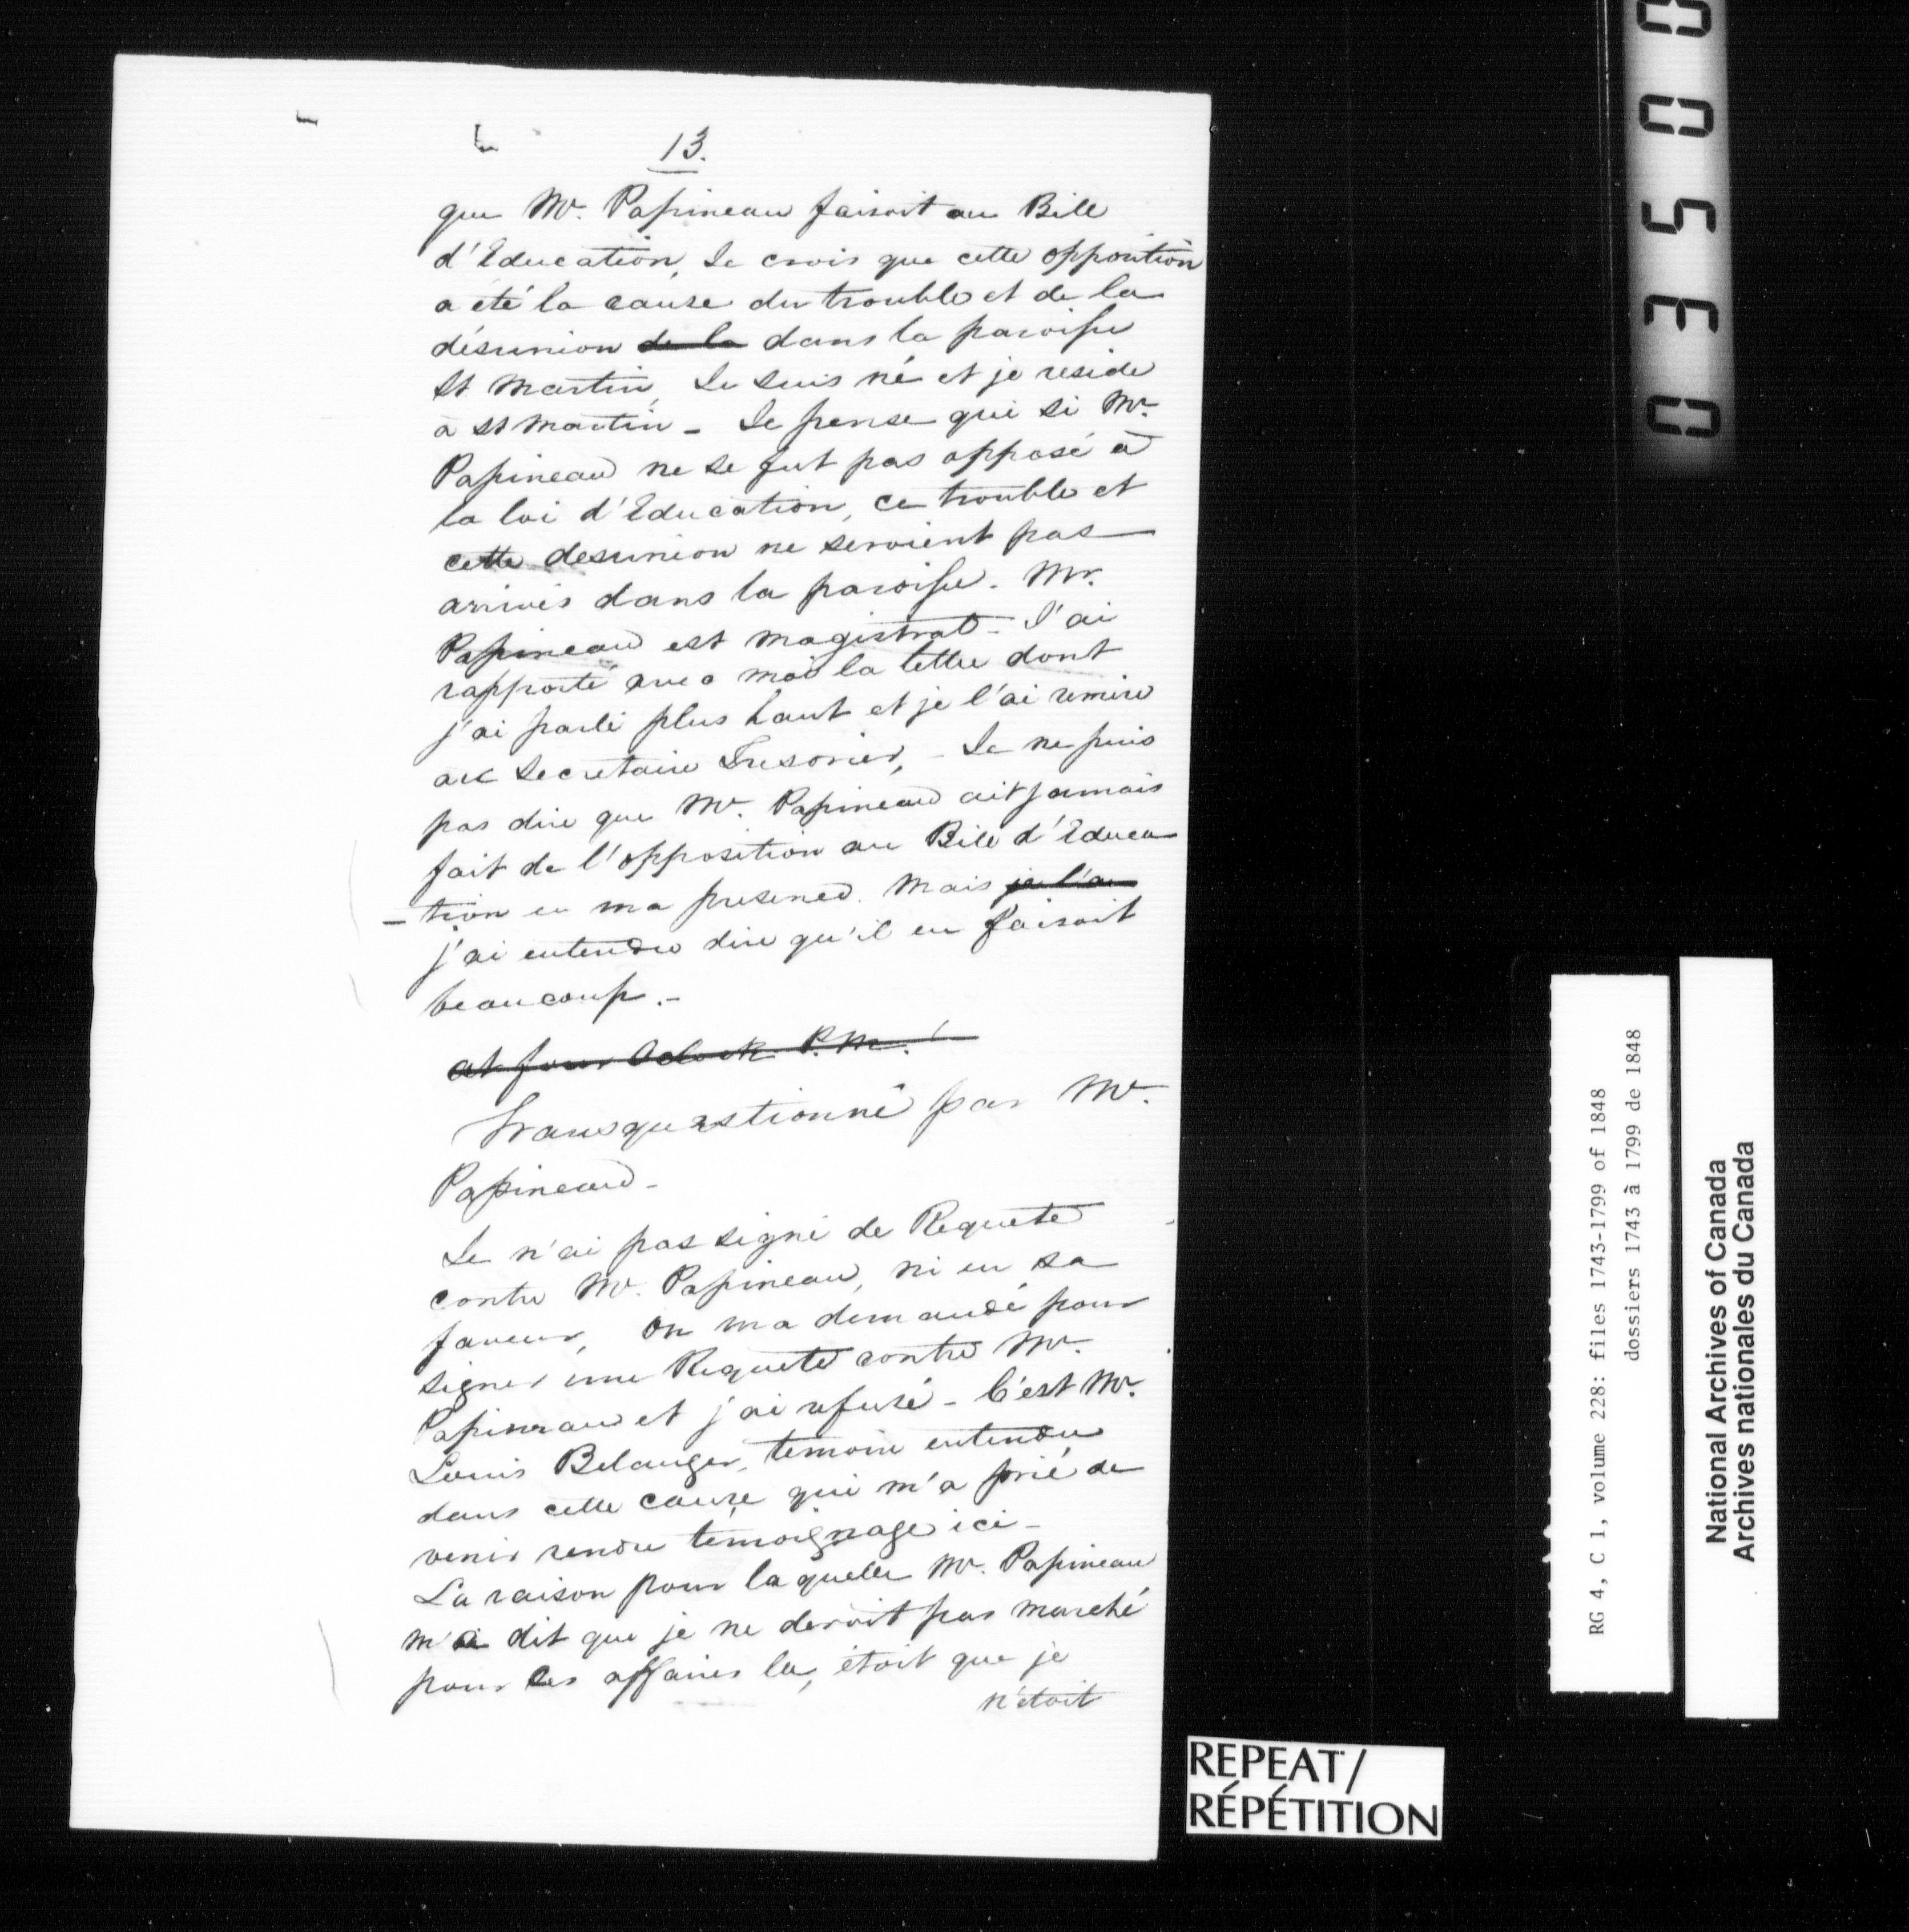 13.
que Mr. Papineau faisoit au Bill
d'Education, Je crois que cette opposition
a été la cause du trouble et de la
désunion de la dans la paroisse
St Martin, Je suis né et je reside
à St Martin - Je pense que si Mr.
Papineau ne se fut pas opposé à
la loi d'Education, ce trouble et
cette desunion ne seroient pas
arrivés dans la paroisse. Mr.
Papineau est magistrat - J'ai
rapporté avec moi la lettre dont
j'ai parlé plus haut et je l'ai remise
au Secretaire Tresorier, - Je ne puis
pas dire que Mr. Papineau ait jamais
fait de l'opposition au Bill d'Educa
- tion en ma presence. Mais je l'ai
j'ai entendu dire qu'il en faisoit
beaucoup. -
at four Oclock P.M.
Transquestionné par Mr.
Papineau -
Je n'ai pas signé de Requete
contre Mr. Papineau, ni en sa
faveur, On m'a demandé pour
signer une Requete contre Mr.
Papineau et j'ai refusé - C'est Mr.
Louis Belanger, temoin entendu
dans cette cause qui m'a prié de
venir rendre témoignage ici -
La raison pour laquelle Mr. Papineau
m'a dit que je ne devoit pas marché
pour ces affaires la, étoit que je
n'étoit
03500
RG 4, C 1, volume 228: files 1743-1799 of 1848
dossiers 1743 à 1799 de 1848
National Archives of Canada
Archives nationales du Canada
REPEAT/
RÉPÉTITION